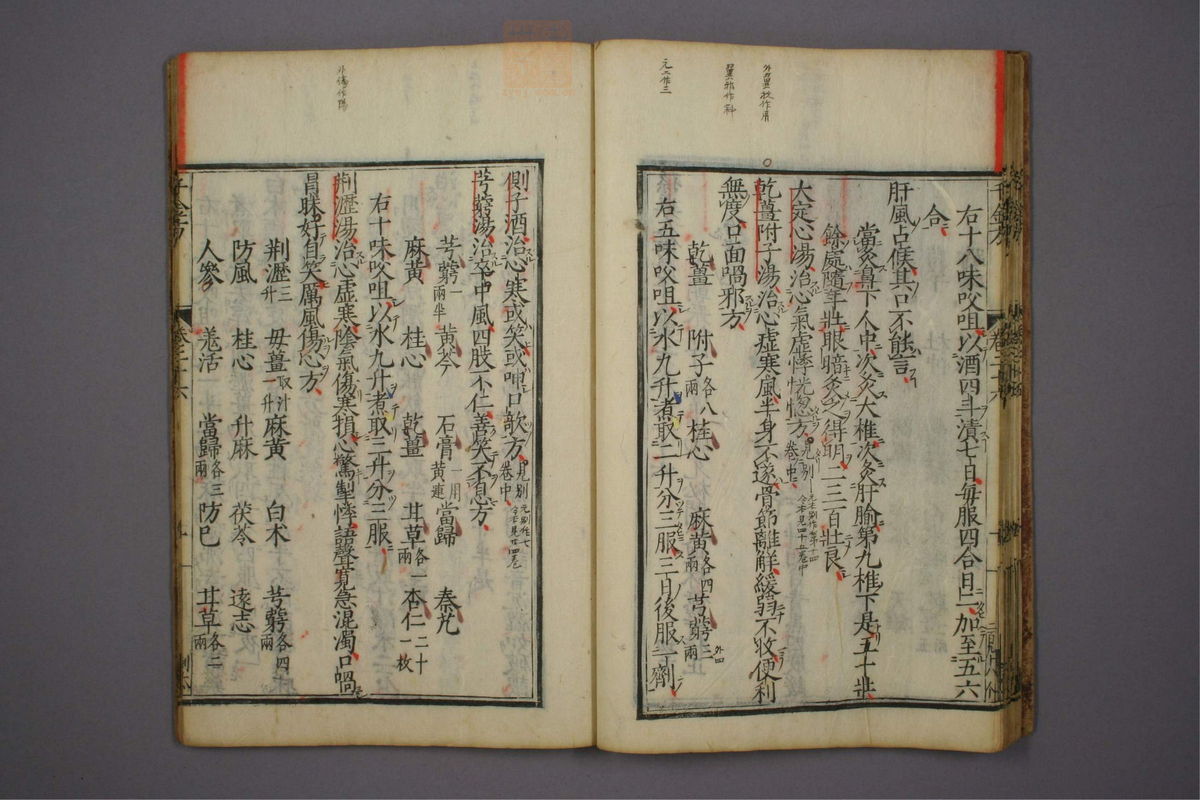 右十八味㕮咀以酒四斗漬七日每服四合日二加至五六
合
肝風占候其口不能言
當灸鼻下人中次灸大椎次灸肝腧第九椎下是五十壯
餘處隨年壯眼暗灸之得明二三百壯良
大定心湯治心氣虛悸恍惚方見別卷中
乾薑附子湯治心虛寒風半身不遂骨節離解緩弱不收便利
無度口面喎邪方
乾薑 附子各八兩 桂心 麻黃各四兩 芎藭三兩
右五味㕮咀以水九升煮取二升分三服三日後服一劑
側子酒治心寒或笑或呻口歌方見別卷中
芎藭湯治卒中風四肢不仁善笑不息方
芎藭一兩半 黃芩 石膏一用黃連 當歸 秦艽
麻黃 桂心 乾薑 甘草各一兩 杏仁二十一枚
右十味㕮咀以水九升煮取三升分三服
荊瀝湯治心虛寒陰氣傷寒損心驚掣悸語聲寬急混濁口喎
冒昧好自笑厲風傷心方
荊瀝三升 母薑一升取汁 麻黃 白朮 芎藭各四兩
防風 桂心 升麻 茯苓 遠志
人參 羗活 當歸各三兩 防巳 甘草各二兩
外臺收作屑
翼邪作斜
元二作三
外傷作陽
千金方
卷二十六